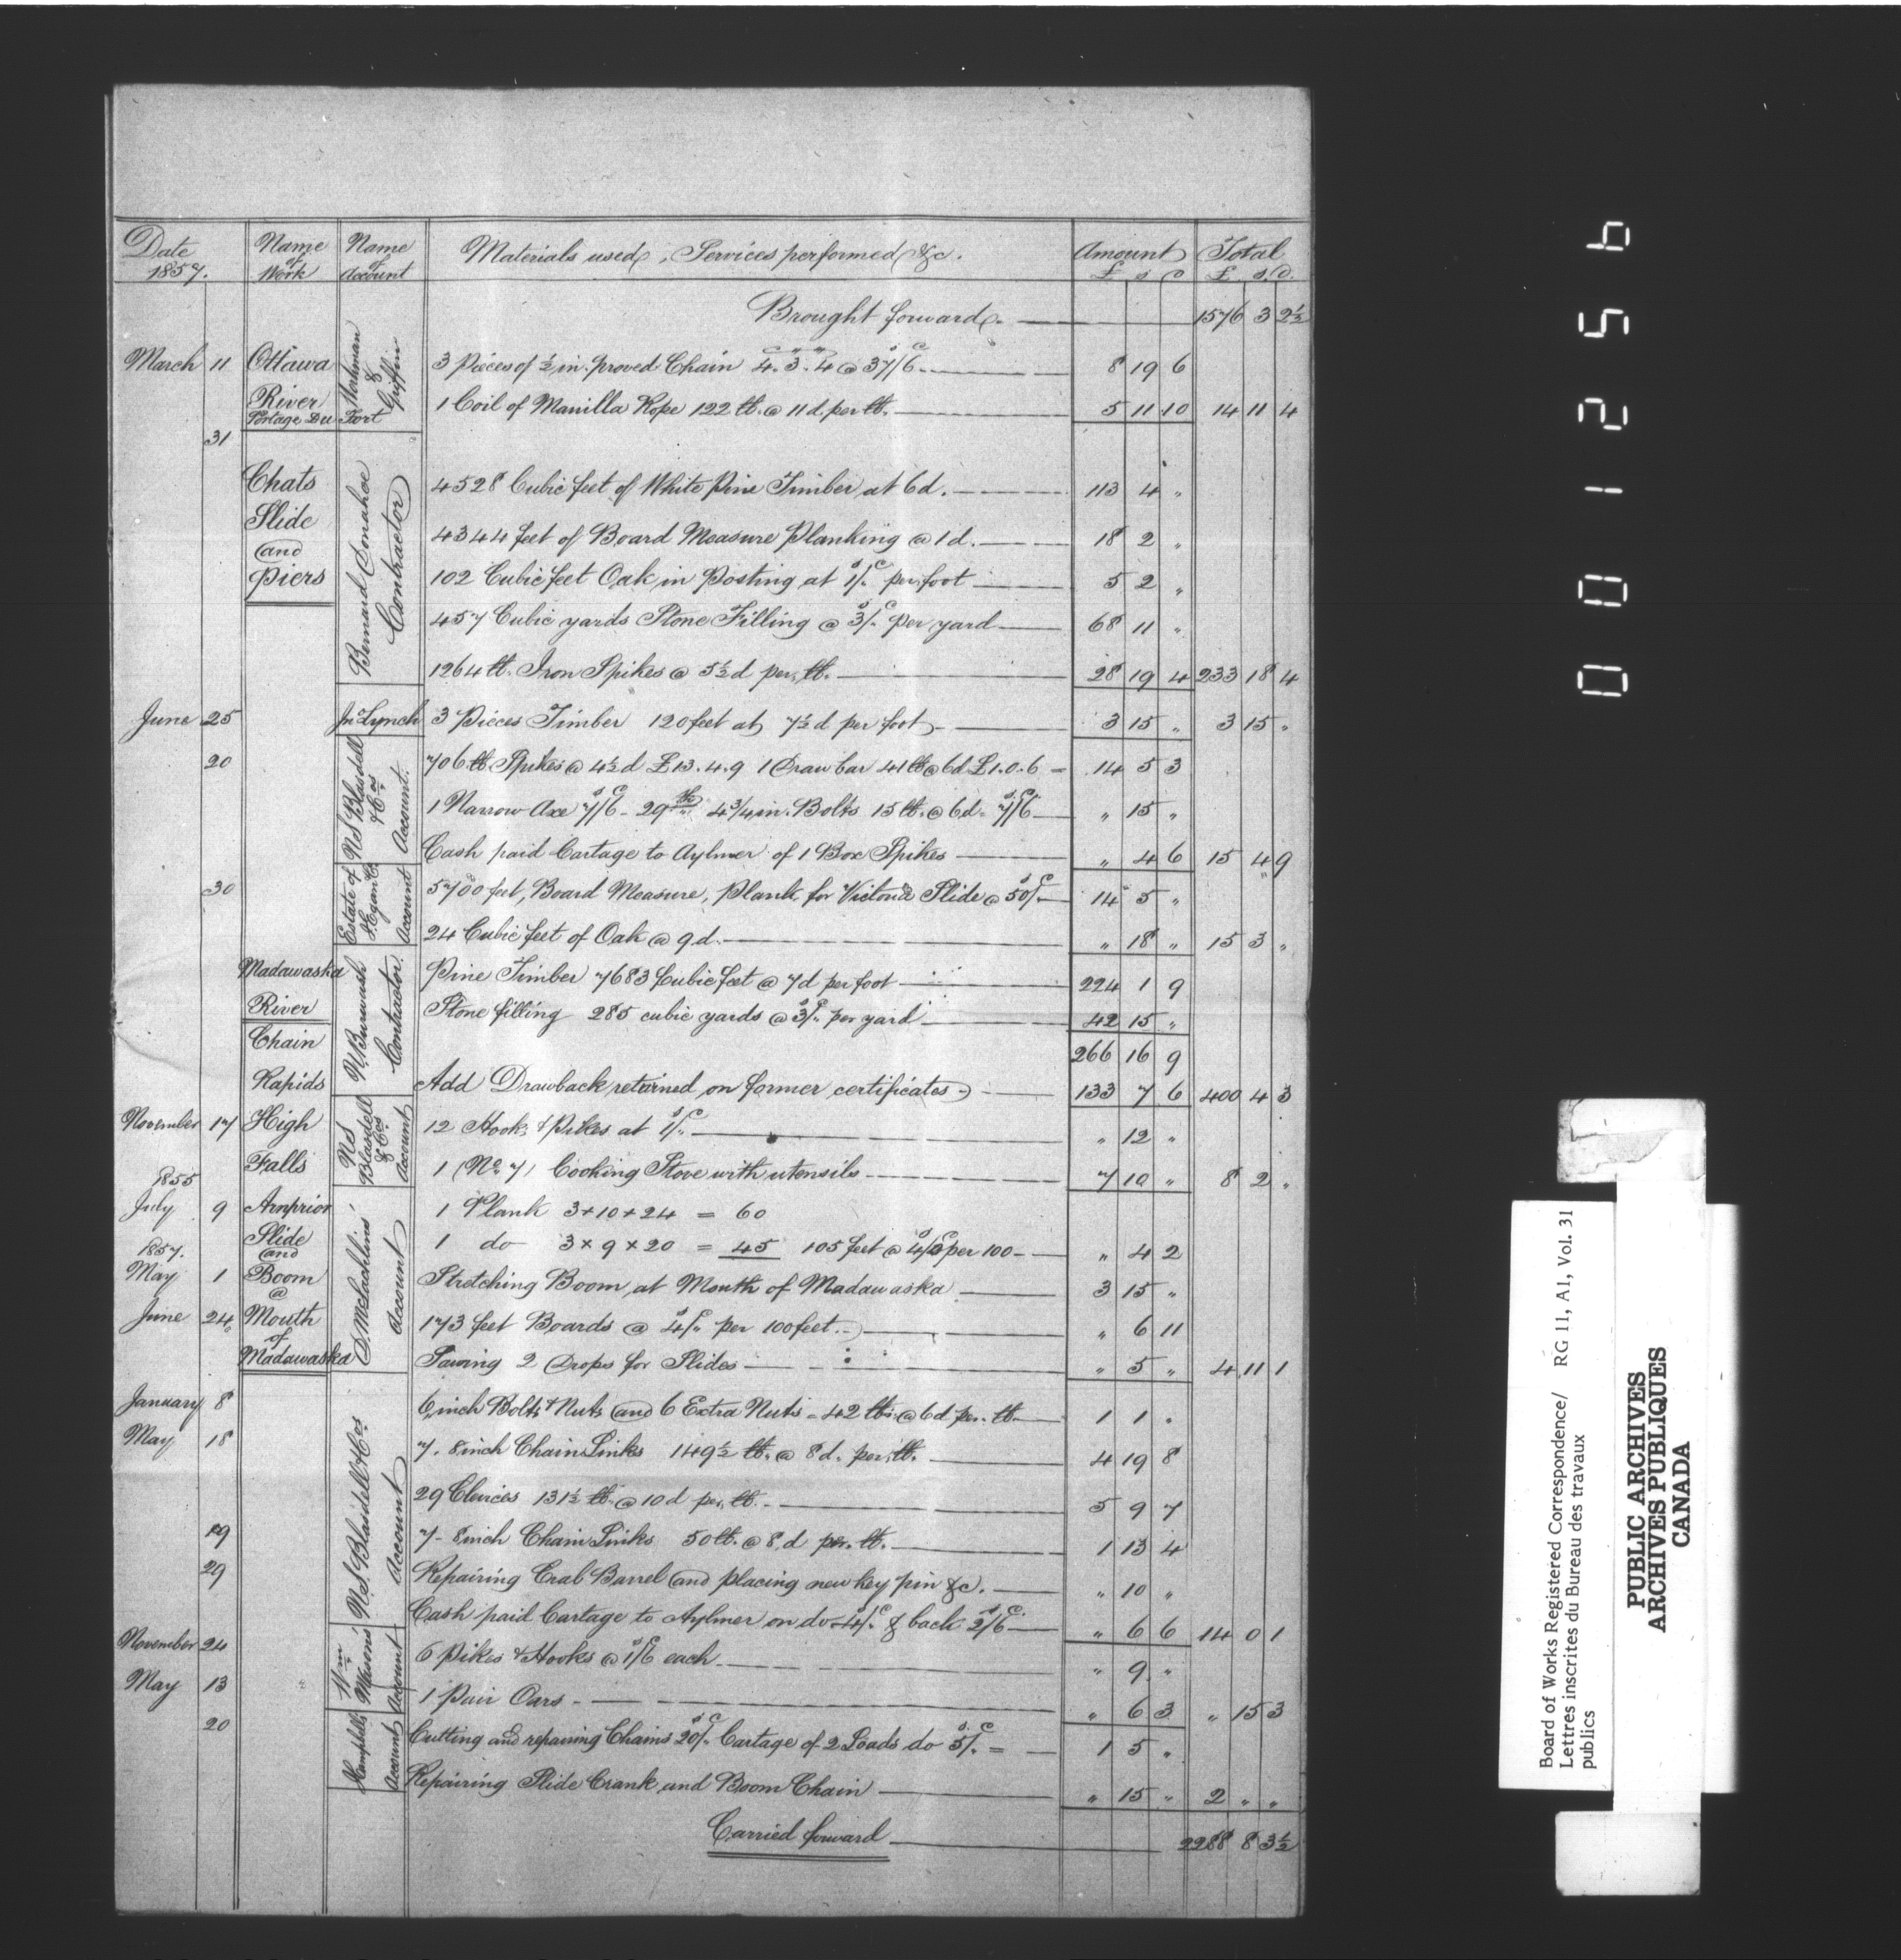 Date 1857. Name of Work Name of Account Materials used, Services performed &c. Amount £ s D Total £ s. D.
Brought forward. 1576 3 2½
March 11 Ottawa River Portage Du Fort Workman & Griffin 3 Pieces of ½ in. proved Chain 4. 3. 4 @ 37/6 8 19 6
1 Coil of Manilla Rope 122 lb. @ 11 d. per lb. 5 11 10 14 11 4
31 Chats Slide and Piers Bernard Donahoe Contractor
4528 Cubic feet of White Pine Timber at 6d. 113 4 "
4344 feet of Board Measure Planking @ 1d. 18 2 "
102 Cubic feet Oak in Posting at 1/. per foot 5 2 "
457 Cubic yards Stone Filling @ 3/. per yard 68 11 "
1264 lb. Iron Spikes @ 5½d per. lb. 28 19 4 233 18 4
June 25 Jno Lynch 3 Pieces Timber 120 feet at 7½ d per foot 3 15 " 3 15 "
20 N S Blaisdell & Cos Account. 706 lb Spikes @ 4½ d £13. 4. 9 1 Draw bar 41 lb @ 6d £1. 0. 6 = 14 5 3
1 Narrow Axe 7/6 - 29th 4 3/4 in. Bolts 15 lb. @ 6d. 7/6 " 15 "
Cash paid Cartage to Aylmer of 1 Box Spikes " 4 6 15 4 9
30 Estate of J. Egan Co Account 5700 feet, Board Measure, Plank for Victoria Slide @ 50/. 14 5 "
24 Cubic feet of Oak @ 9d. " 18 " 15 3 "
Madawaska River N. Burwash Contractor. Pine Timber 7683 Cubic feet @ 7d per foot 224 1 9
Stone filling 285 cubic yards @ 3/. per yard 42 15 "
Chain 266 16 9
Rapids Add Drawback returned on former certificates 133 7 6 400 4 3
November 17 High Falls N S Blaisdell & Cos Account 12 Hooks & Pikes at 1/. " 12 "
1 (No. 7) Cooking Stove with utensils 7 10 " 8 2 "
1855 July 9 Arnprior Slide and D. McLachlins' Account 1 Plank 3+10+24 = 60
1 do 3 × 9 × 20 = 45 105 feet @ 4/. per 100 " 4 2
1857. May 1 Boom @ Stretching Boom at Mouth of Madawaska 3 15 "
June 24 Mouth of 173 feet Boards @ 4/. per 100 feet. " 6 11
Madawaska Sawing 2 Drops for Slides " 5 " 4 11 1
January 8 N S. Blaisdell & Cos Account 6 inch Bolts & Nuts and 6 Extra Nuts = 42 lbs. @ 6d per. lb 1 1 "
May 18 7. 8 inch Chain Links 149½ lb. @ 8 d. per. lb. 4 19 8
29 Clevices 131½ lb. @ 10 d per. lb. 5 9 7
19 7 - 8 inch Chain Links 50 lb. @ 8 d per. lb. 1 13 4
29 Repairing Crab Barrel and placing new key pin &c. " 10 "
Cash paid Cartage to Aylmer on do 4/. & back 2/6 " 6 6 14 0 1
November 24 Wm Masons' Account 6 Pikes & Hooks @ 1/6 each " 9 "
May 13 1 Pair Oars " 6 3 " 15 3
20 Hemphills Account Cutting and repairing Chains 20/. Cartage of 2 Loads do 5/. 1 5 "
Repairing Slide Crank and Boom Chain " 15 " 2 " "
Carried forward 2288 8 3½
001256
Board of Works Registered Correspondence/ RG 11, A1, Vol. 31
Lettres inscrites du Bureau des travaux
publics
PUBLIC ARCHIVES
ARCHIVES PUBLIQUES
CANADA